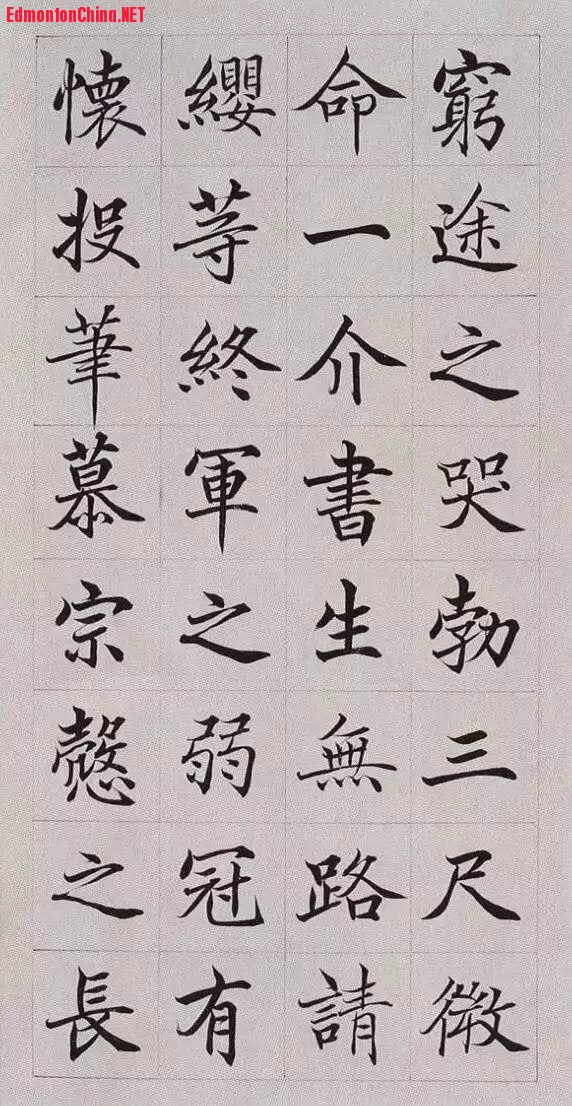 EdmontonChina.NET
窮途之哭勃三尺微
命一介書生無路請
纓等終軍之弱冠有
懷投筆慕宗愨之長